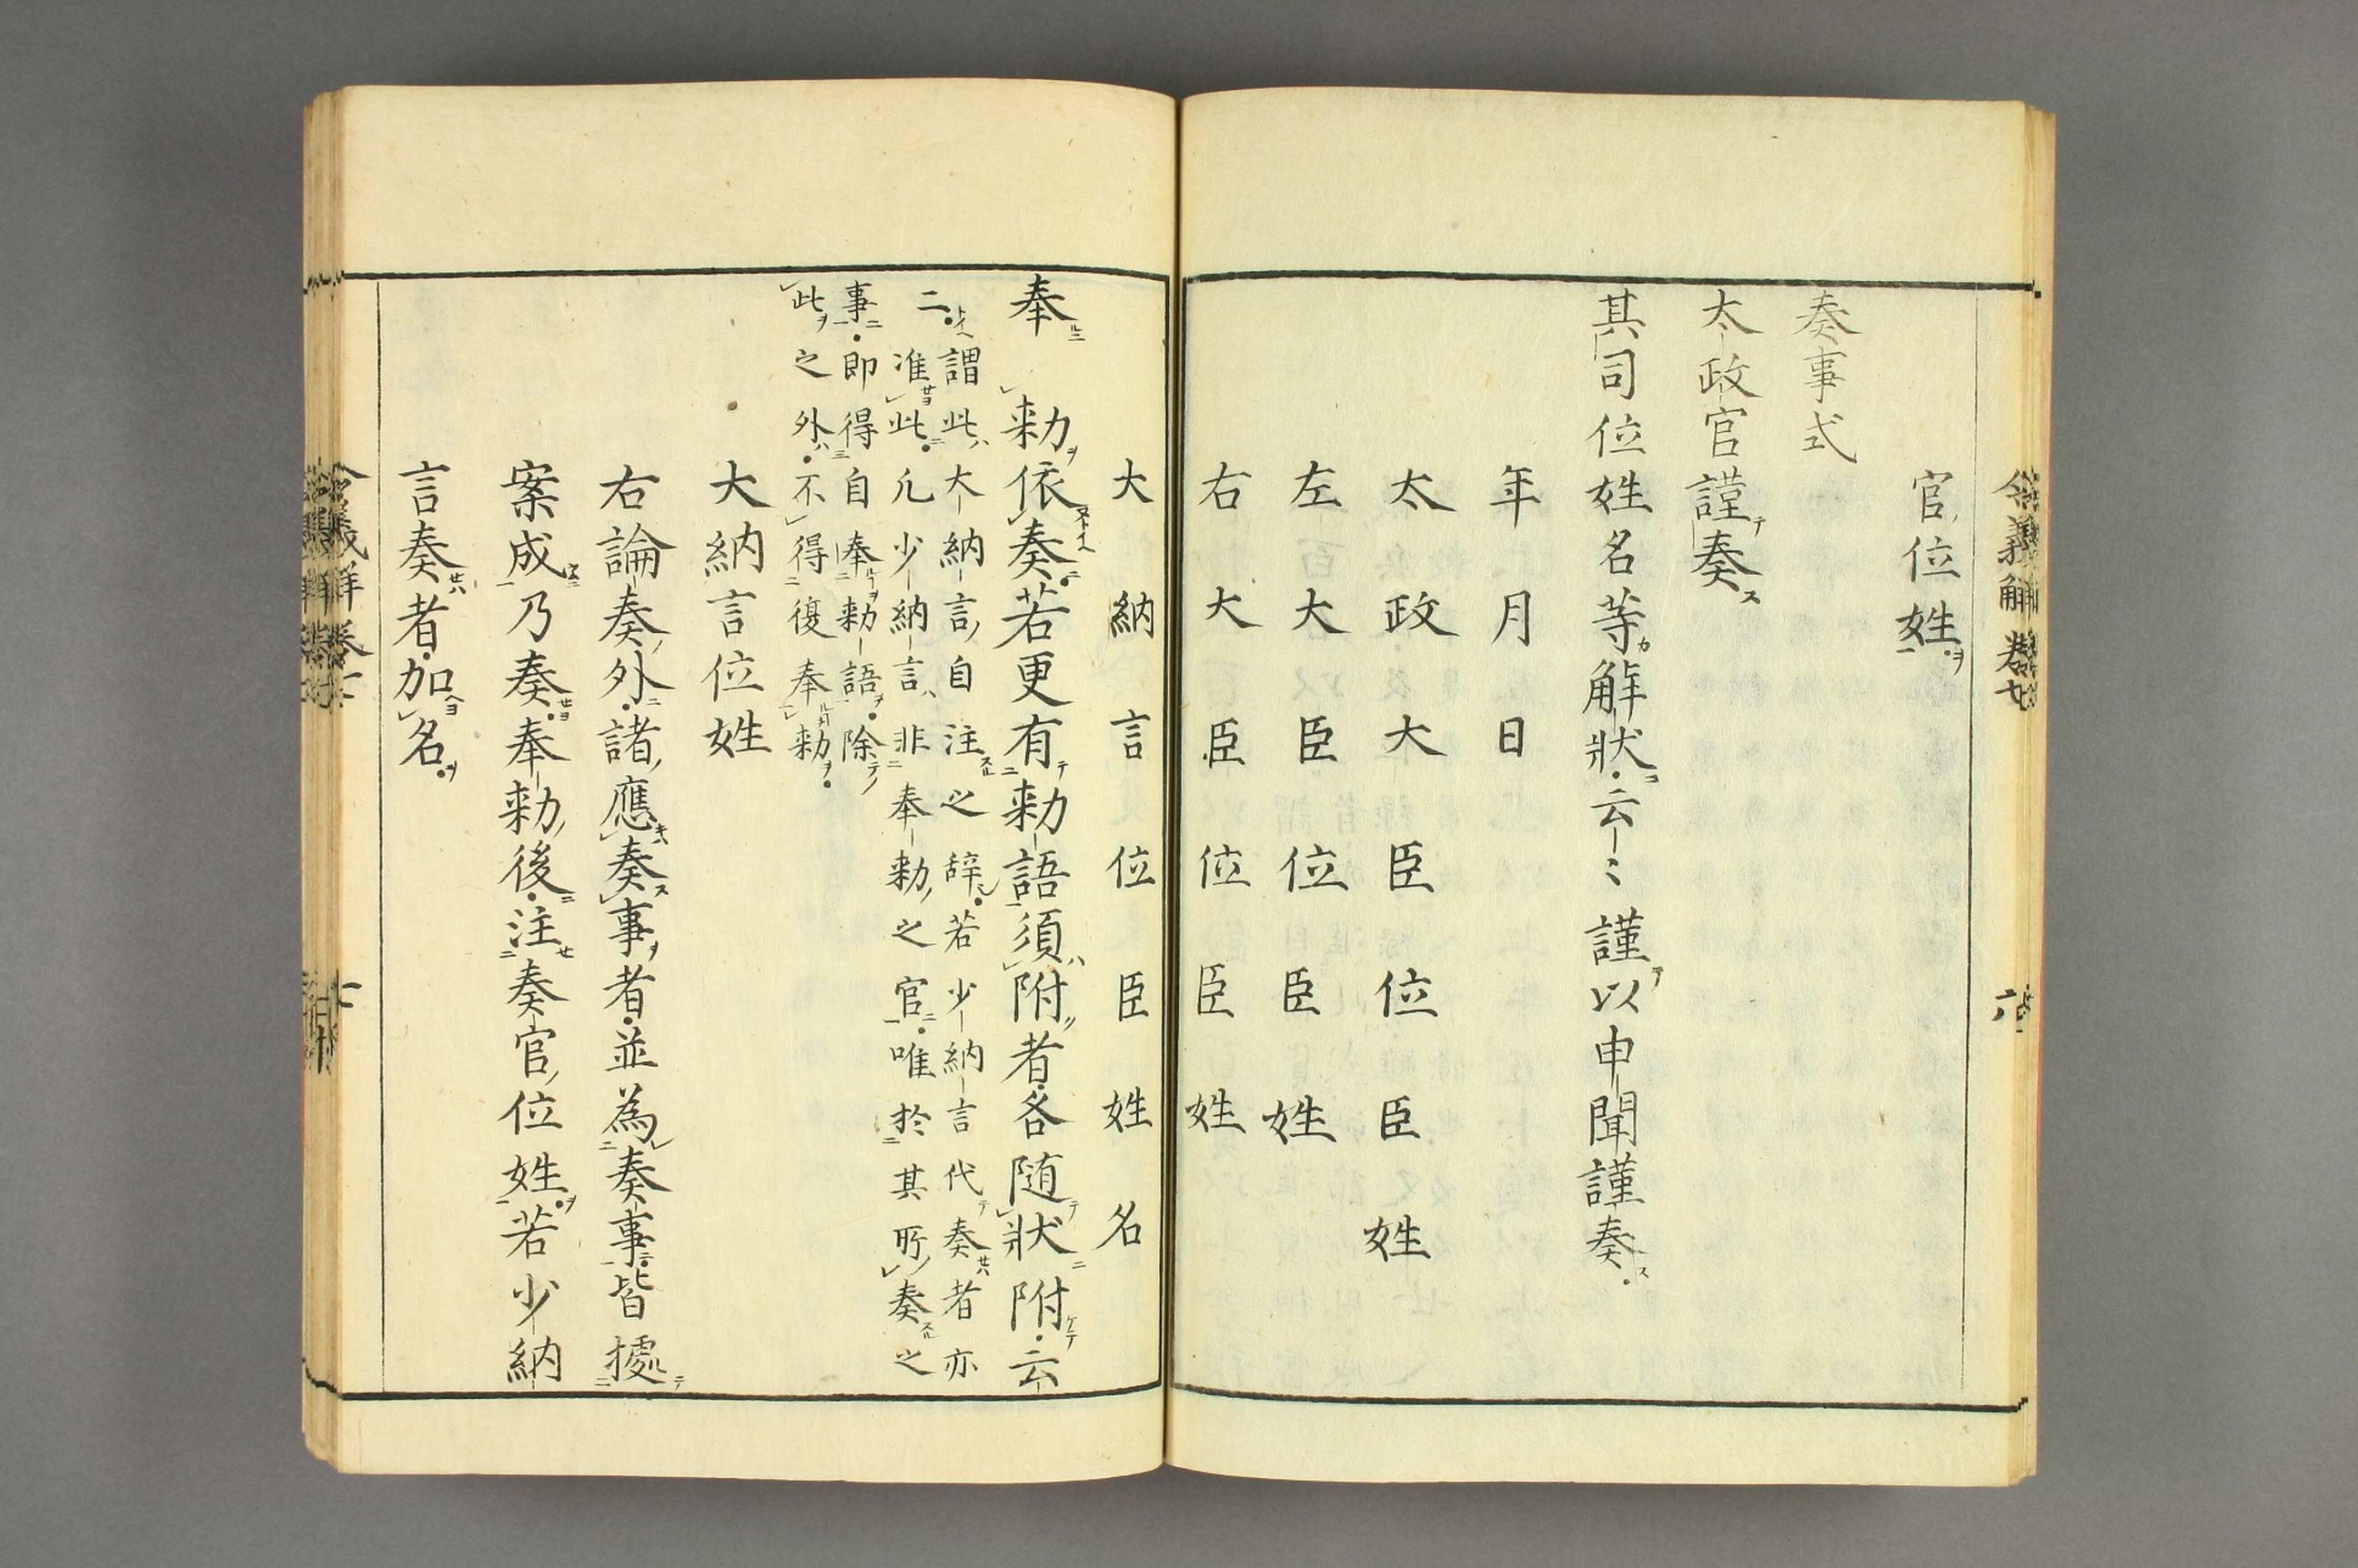 令義解卷七
六
官位姓
奏事式
太政官謹奏
其司位姓名等解狀云〻謹以申聞謹奏
年月日
太政大臣位臣姓
左大臣位臣姓
右大臣位臣姓
大納言位臣姓名
奉　勑依奏若更有勑語須附者各随狀附云
〻謂此大納言自注之辞若少納言代奏者亦
准此凢少納言非奉勑之官唯於其所奏之
事即得自奉勑語除
此之外不得復奉勑
大納言位姓
右論奏外諸應奏事者並為奏事皆據
案成乃奏奉勑後注奏官位姓若少納
言奏者加名